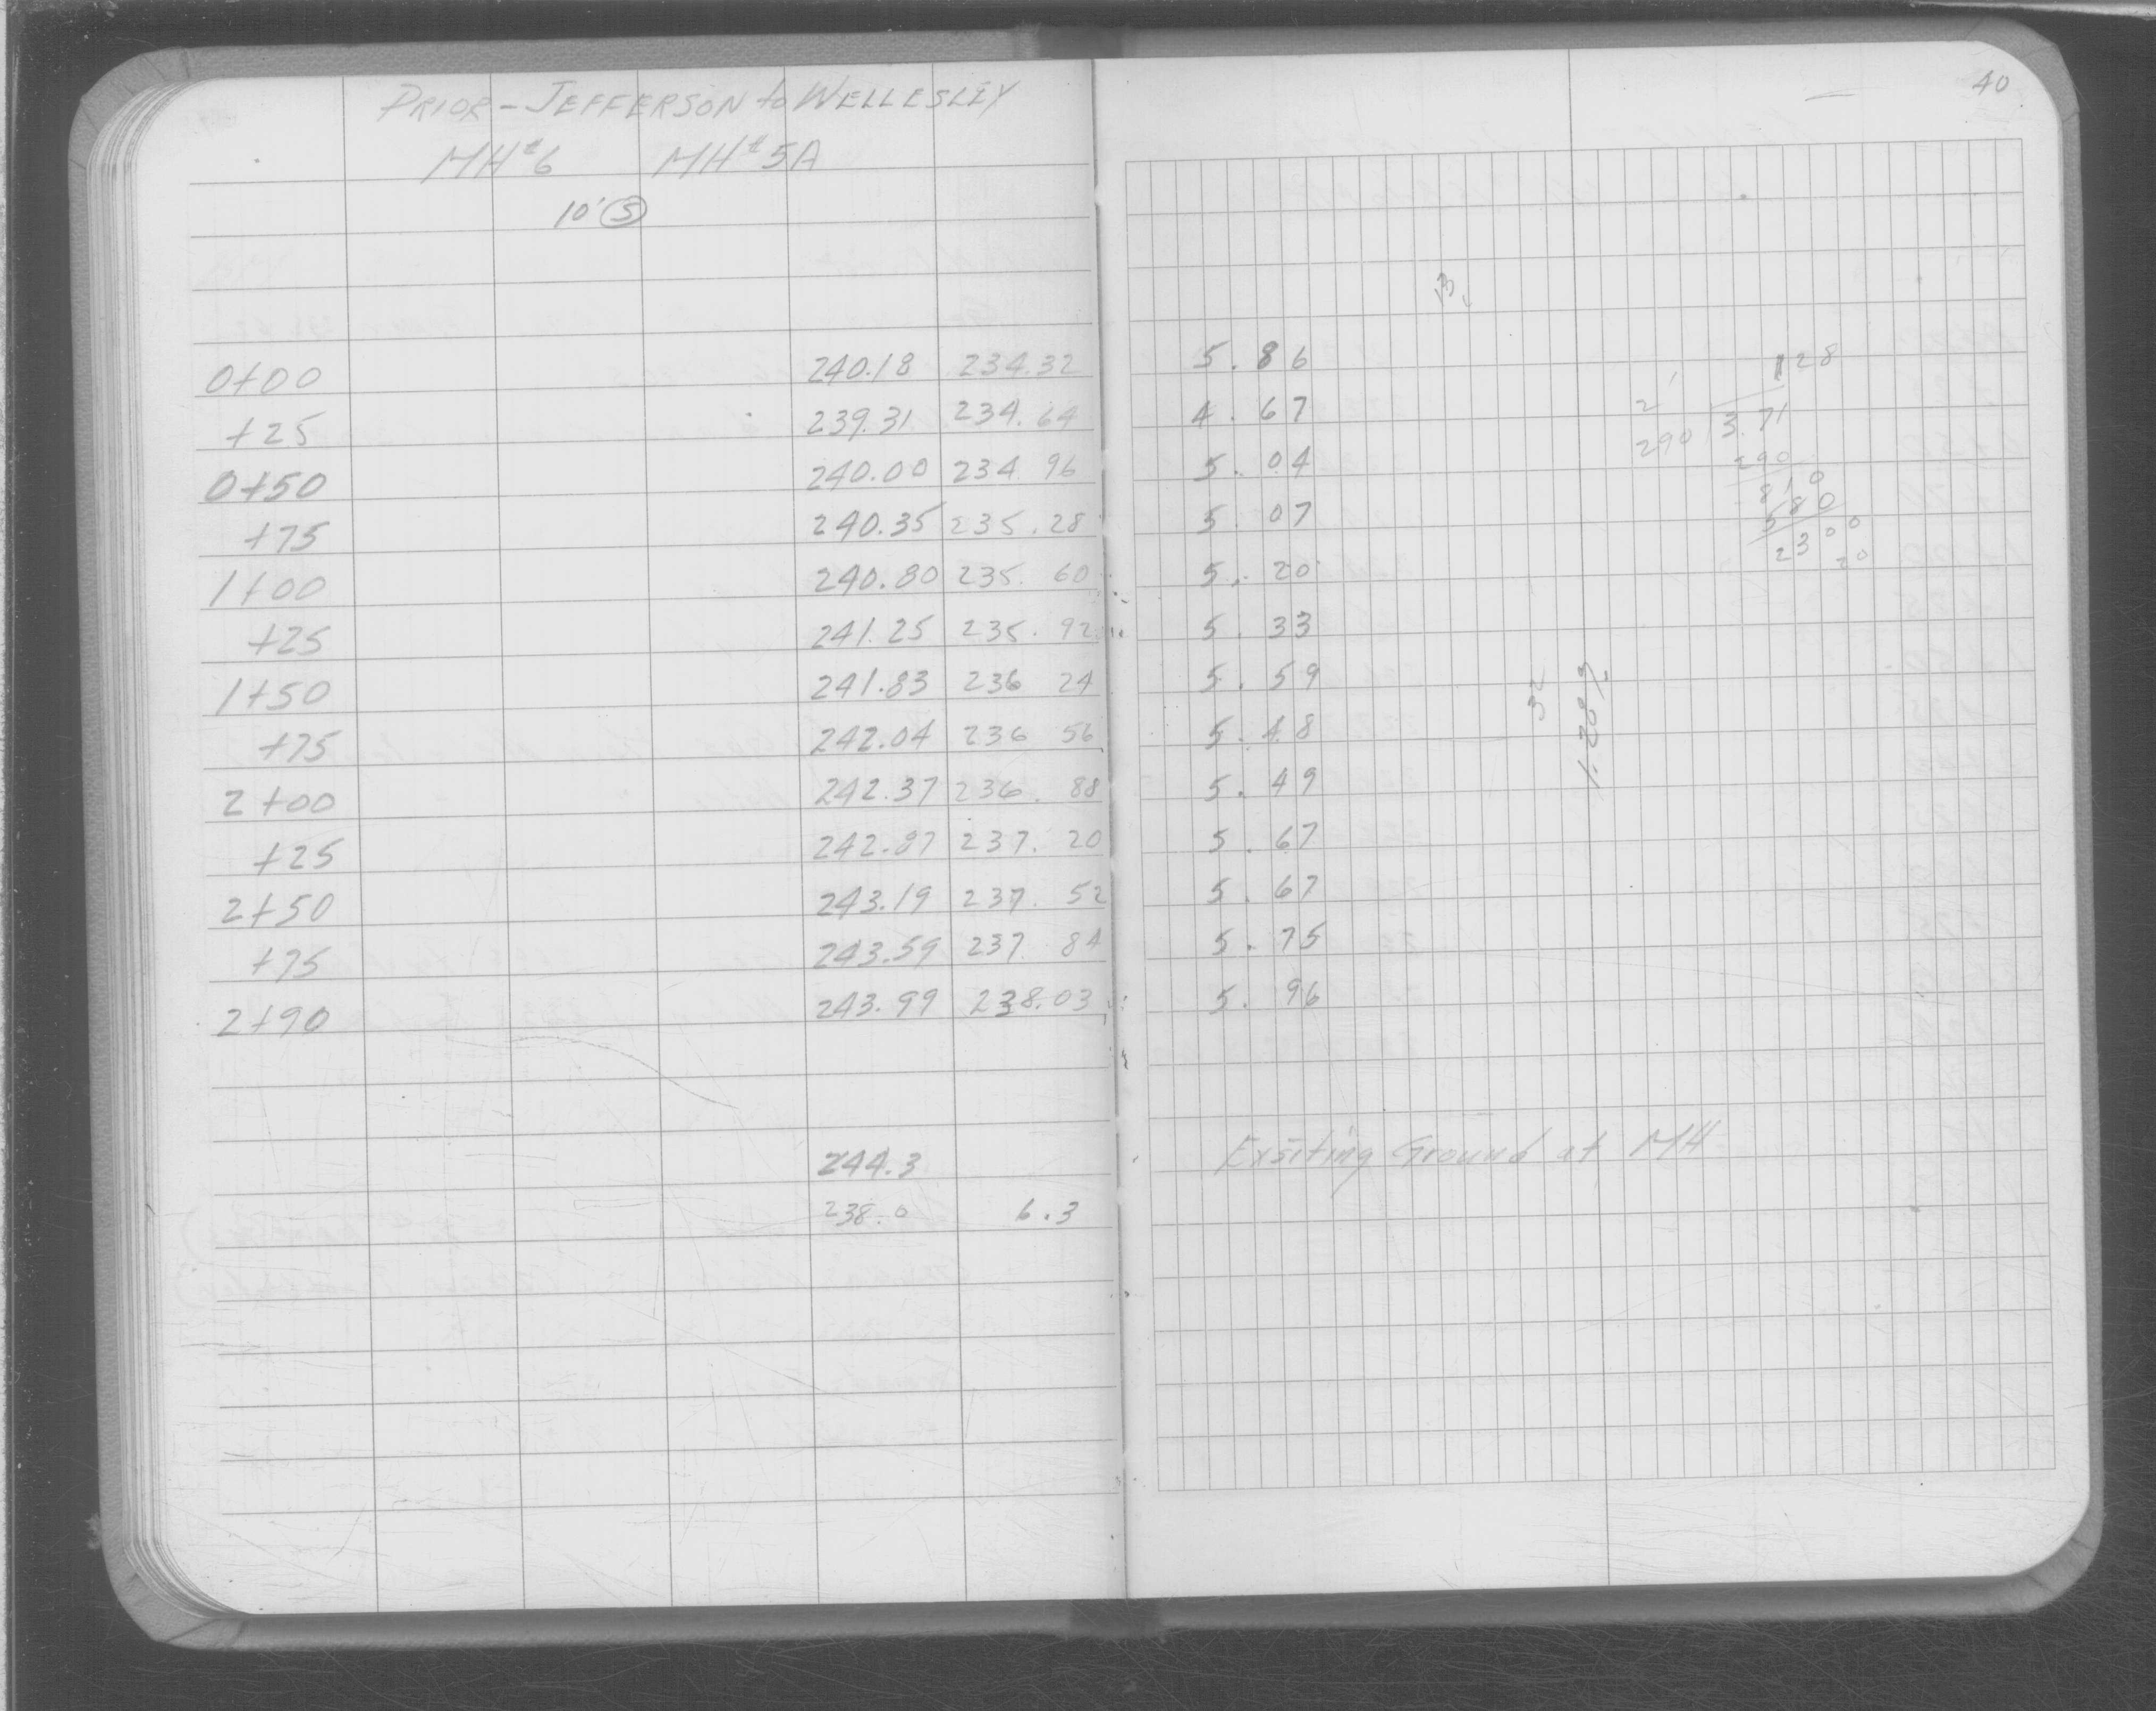 40
PRIOR - JEFFERSON to WELLESLEY
MH#6 MH#5A
10' S
0+00 240.18 234.32 5.86
+25 239.31 234.64 4.67
0+50 240.00 234 96 5.04
+75 240.35 235.28 5.07
1+00 240.80 235.60 5.20
+25 241.25 235.92 5.33
1+50 241.83 236 24 5.59
+75 242.04 236 56 5.48
2+00 242.37 236.88 5.49
+25 242.87 237.20 5.67
2+50 243.19 237.52 5.67
+75 243.59 237 84 5.75
2+90 243.99 238.03 5.96
244.3 Exsiting Ground at MH
238.0 6.3
128
290 3.71
290
810
580
2300
20
32
1.28%